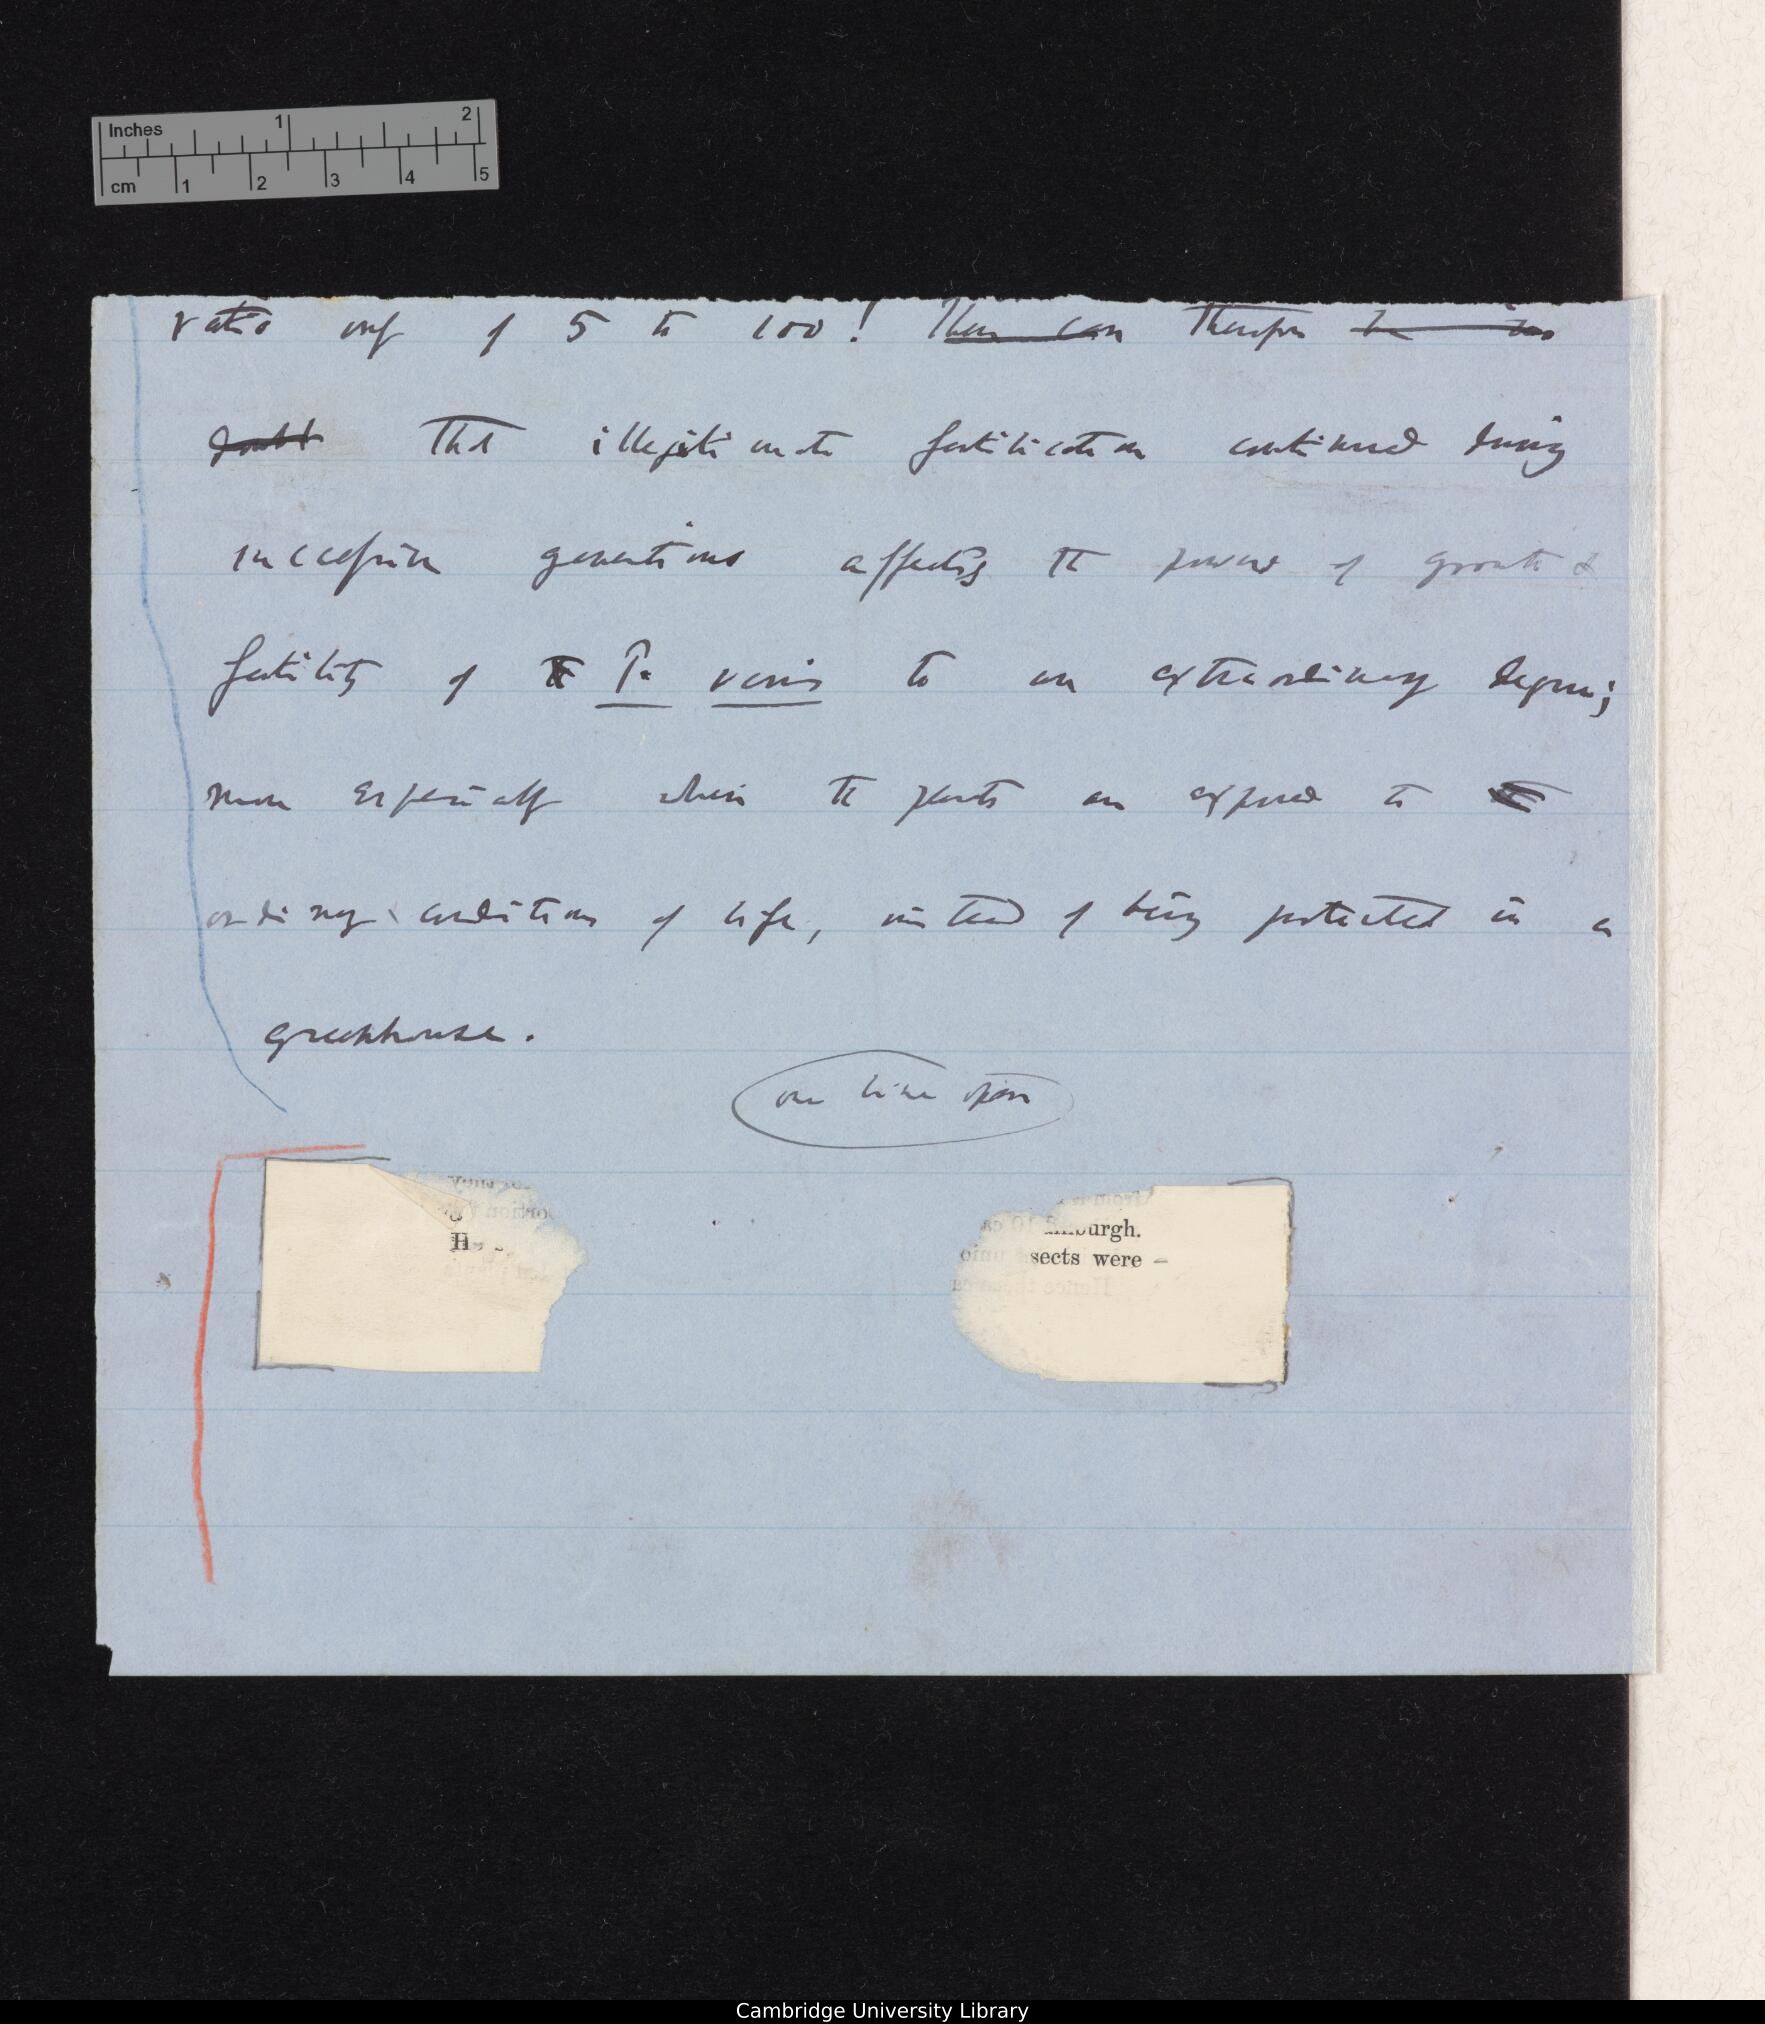 Inches 1 2
cm 1 2 3 4 5
ratio only of 5 to 100! There can therefore be no
doubt that illegitimate fertilisation continued during
successive generations affects the powers of growth &
fertility of P. veris to an extraordinary degree;
more especially when the plants are exposed to
ordinary conditions of life, instead of being protected in a
greenhouse.
one line open
burgh.
sects were –
Cambridge University Library